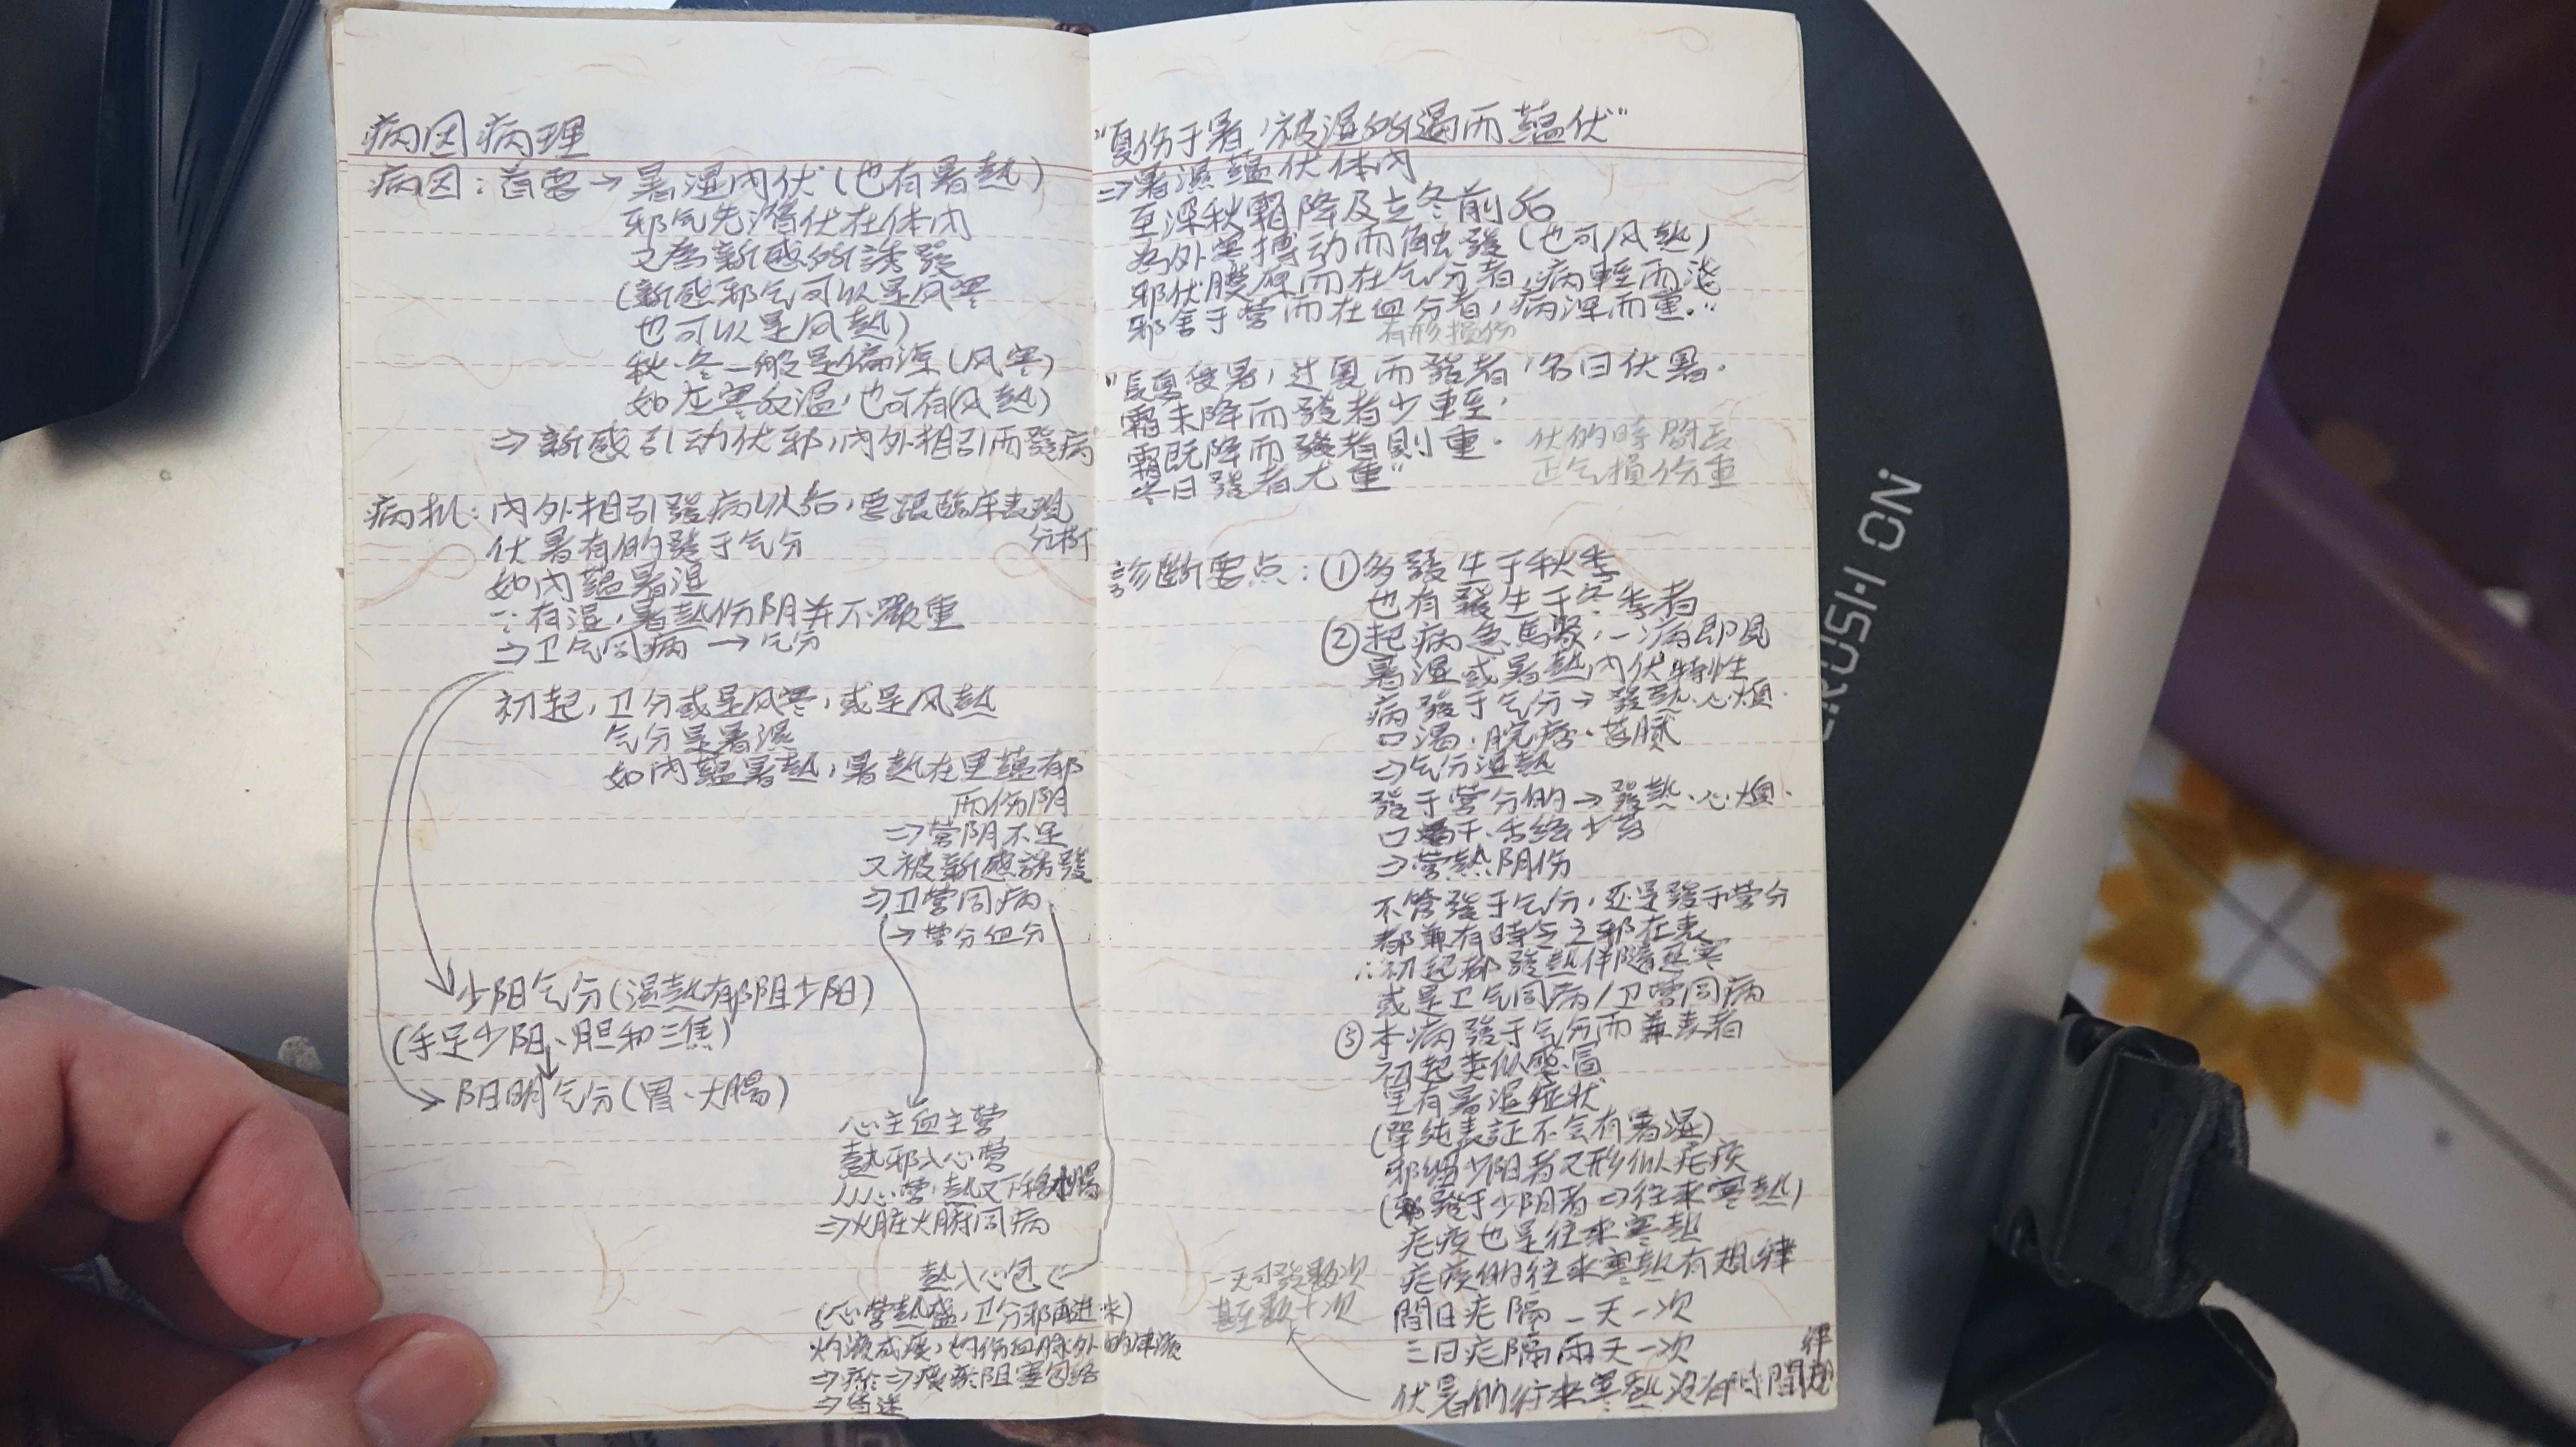 病因病理
病因：首要→暑湿内伏（也有暑熱）
邪气先潛伏在体内
又為新感所誘發
（新感邪气可以是风寒
也可以是风熱）
秋·冬一般是偏涼（风寒）
如应寒反温，也可有（风熱）
⇒新感引动伏邪，内外相引而發病
病机：内外相引發病以后，要跟臨床表現
分析
伏暑有的發于气分
如内蘊暑湿
∵有湿，暑熱伤阴并不嚴重
⇒卫气同病→气分
初起，卫分或是风寒，或是风熱
气分是暑濕
如内蘊暑熱，暑熱在里蘊郁
而伤阴
⇒营阴不足
又被新感誘發
⇒卫营同病
→营分血分
少阳气分（湿熱郁阻少阳）
（手足少阳、胆和三焦）
阳明气分（胃、大腸）
心主血主营
熱邪入心营
心营熱又下移小腸
⇒火脏火腑同病
熱入心包
（心营熱盛，卫分邪再进来）
灼液成痰，灼伤血脉外的津液
⇒瘀⇒痰瘀阻塞包络
"夏伤于暑，被湿所遏而蘊伏"
⇒暑濕蘊伏体内
至深秋霜降及立冬前后
為外寒搏动而触發（也可风熱）
邪伏膜原而在气分者，病輕而浅
邪舍于营而在血分者，病深而重."
有形損伤
"長夏受暑，过夏而發者，名曰伏暑.
霜未降而發者少輕，
霜既降而發者則重.
冬日發者尤重"
伏的時間長
正气損伤重
診斷要点：①多發生于秋季
也有發生于冬季者
②起病急驟，一病即見
暑湿或暑熱内伏特性
病發于气分→發熱·心煩·
口渴·脘痞·苔膩
⇒气分湿熱
發于营分的→發熱·心煩·
口干·舌绛少苔
⇒营熱阴伤
不管發于气分，还是發于营分
都兼有時令之邪在表
∴初起都發熱伴隨恶寒
或是卫气同病/卫营同病
③本病發于气分而兼表者
初起类似感冒
里有暑湿症状
（單纯表証不会有暑湿）
邪疆少阳者又形似疟疾
（發于少阳者⇒往来寒熱）
疟疾也是往来寒熱
疟疾的往来寒熱有規律
間日疟隔一天一次
三日疟隔兩天一次
伏暑的往来寒熱没有時間規
律
一天可發數次
甚至數十次
CRUSH ON